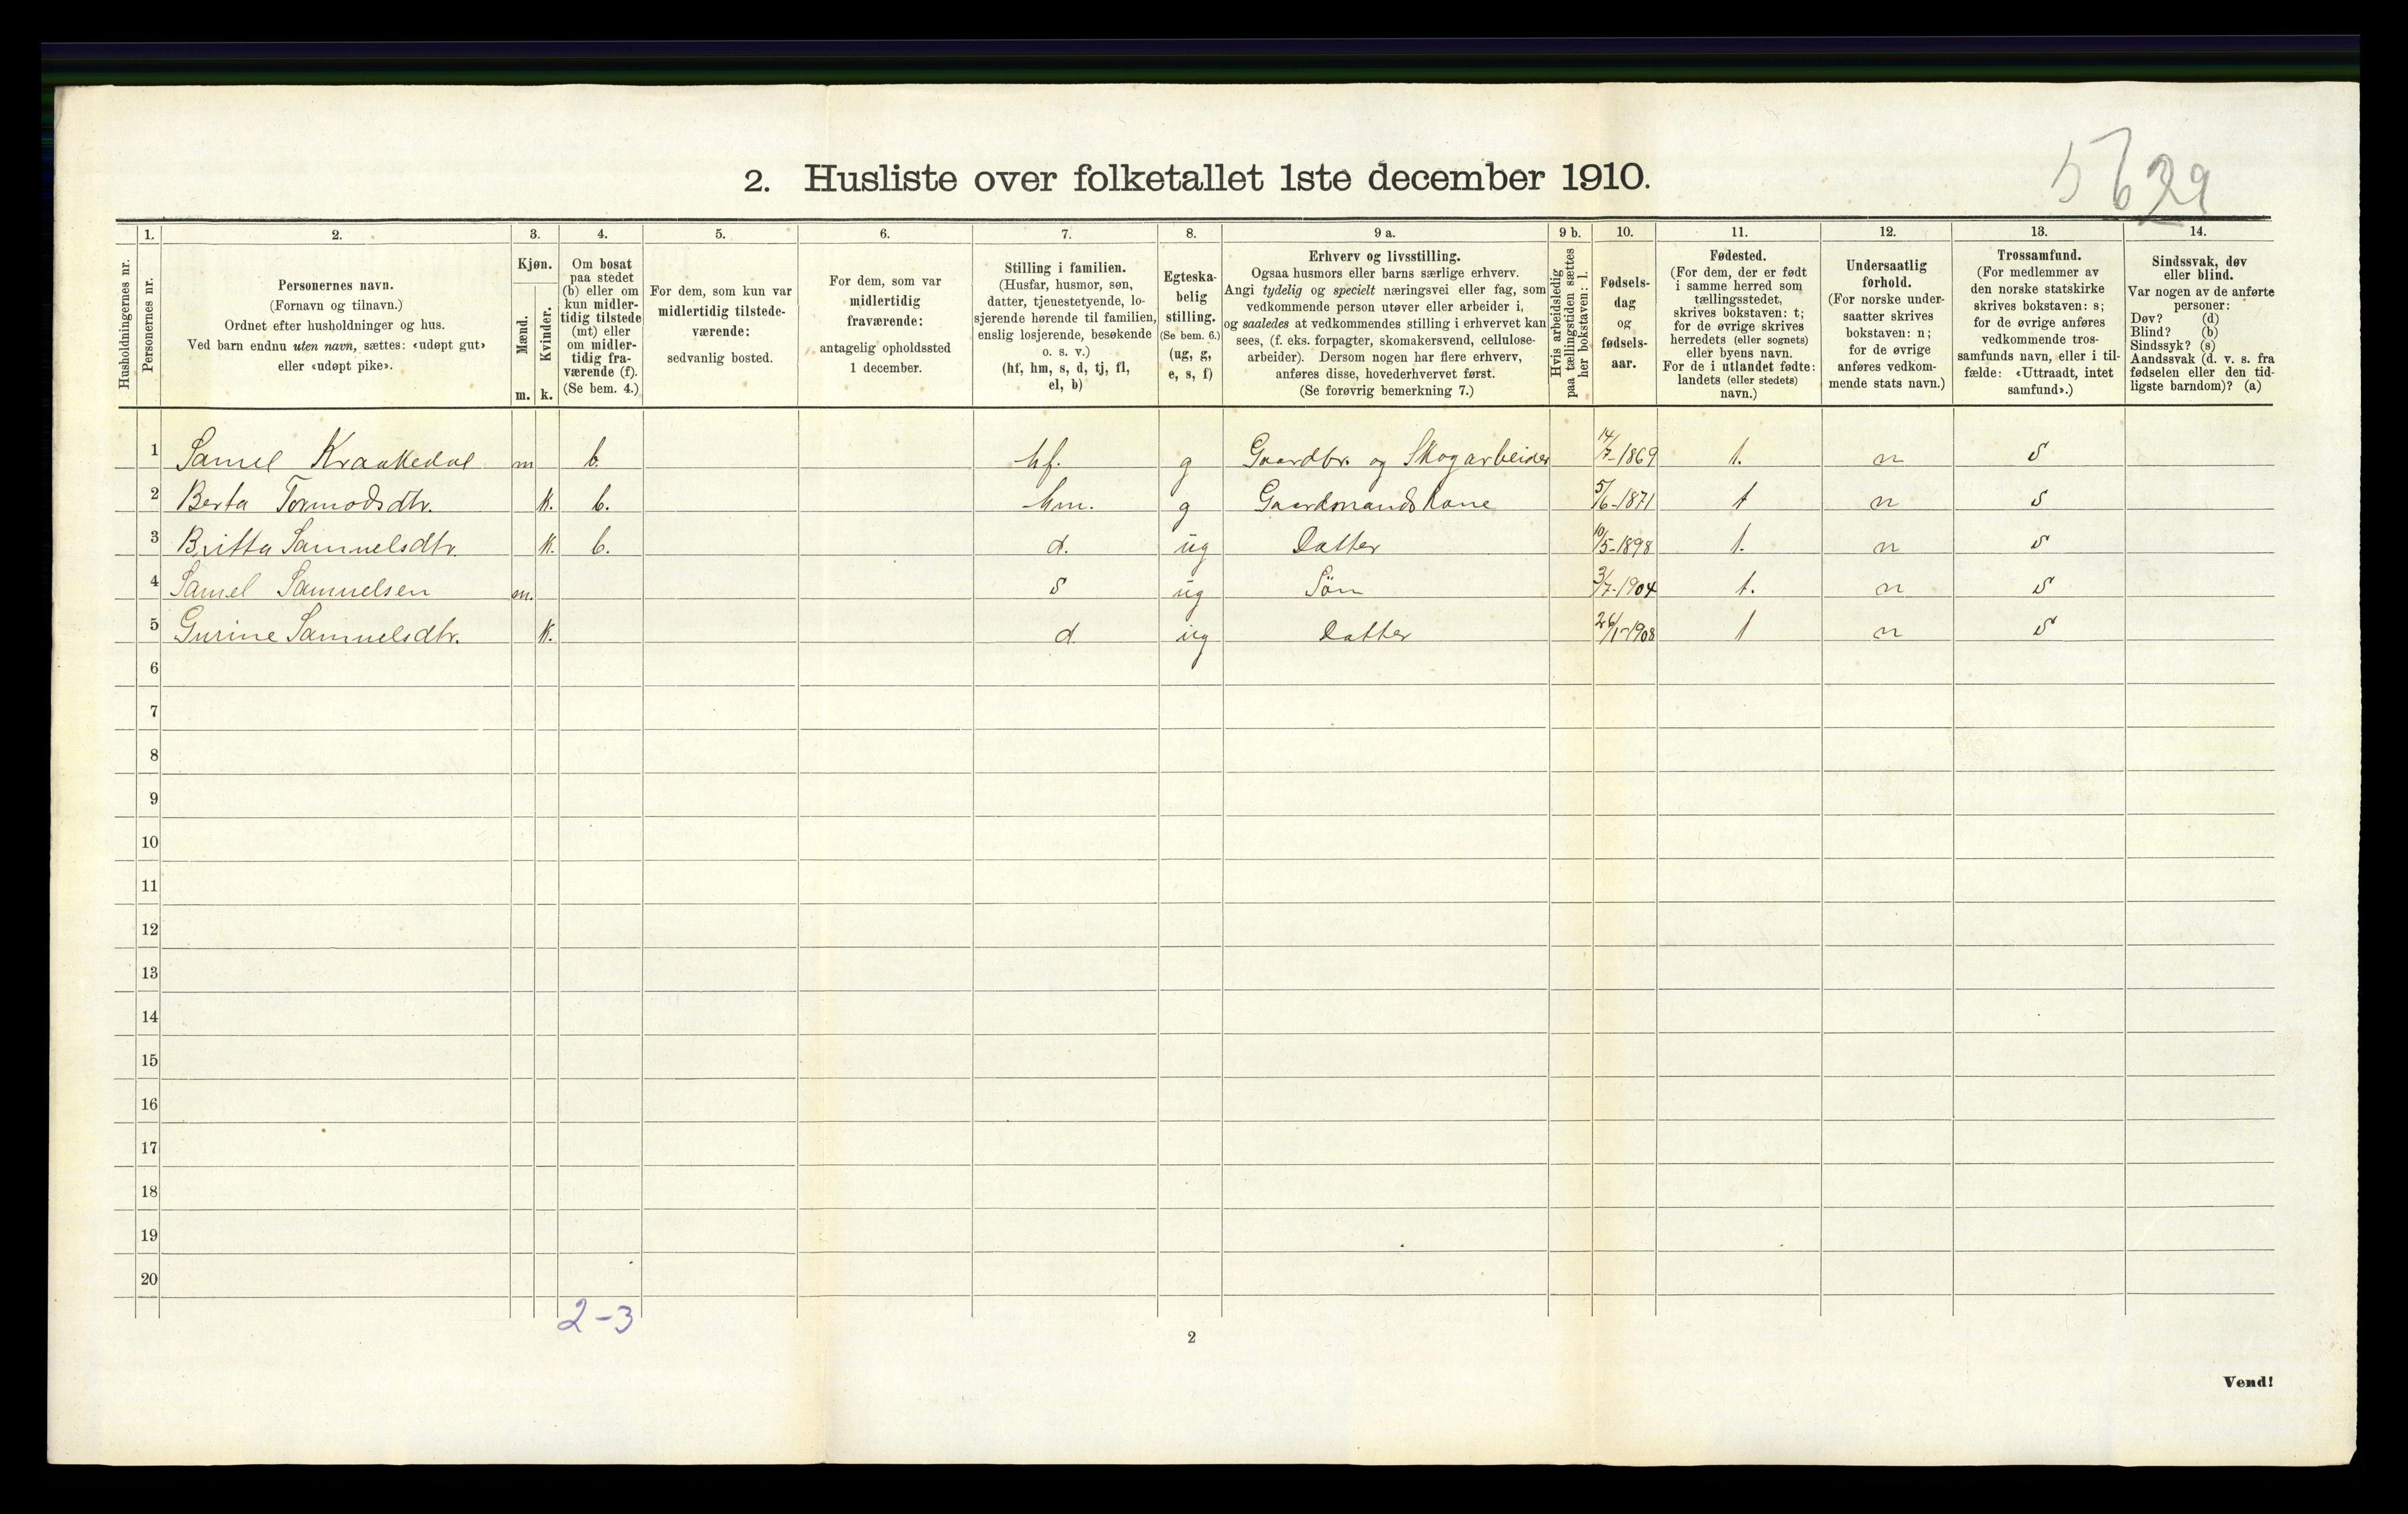 2. Husliste over folketallet 1ste december 1910.
1. 2. 3. 4. 5. 6. 7. 8. 9 a. 9 b. 10. 11. 12. 13. 14.
Husholdningernes nr.
Personernes nr.
Personernes navn.
(Fornavn og tilnavn.)
Ordnet efter husholdninger og hus.
Ved barn endnu uten navn, sættes: «udøpt gut»
eller «udøpt pike».
Kjøn.
Mænd.
Kvinder.
m. k.
Om bosat
paa stedet
(b) eller om
kun midler-
tidig tilstede
(mt) eller
om midler-
tidig fra-
værende (f).
(Se bem. 4.)
For dem, som kun var
midlertidig tilstede-
værende:
sedvanlig bosted.
For dem, som var
midlertidig
fraværende:
antagelig opholdssted
1 december.
Stilling i familien.
(Husfar, husmor, søn,
datter, tjenestetyende, lo-
sjerende hørende til familien,
enslig losjerende, besøkende
o. s. v.)
(hf, hm, s, d, tj, fl,
el, b)
Egteska-
belig
stilling.
(Se bem. 6.)
(ug, g,
e, s, f)
Erhverv og livsstilling.
Ogsaa husmors eller barns særlige erhverv.
Angi tydelig og specielt næringsvei eller fag, som
vedkommende person utøver eller arbeider i,
og saaledes at vedkommendes stilling i erhvervet kan
sees, (f. eks. forpagter, skomakersvend, cellulose-
arbeider). Dersom nogen har flere erhverv,
anføres disse, hovederhvervet først.
(Se forøvrig bemerkning 7.)
Hvis arbeidsledig
paa tællingstiden sættes
her bokstaven: l.
Fødsels-
dag
og
fødsels-
aar.
Fødested.
(For dem, der er født
i samme herred som
tællingsstedet,
skrives bokstaven: t;
for de øvrige skrives
herredets (eller sognets)
eller byens navn.
For de i utlandet fødte:
landets (eller stedets)
navn.)
Undersaatlig
forhold.
(For norske under-
saatter skrives
bokstaven: n;
for de øvrige
anføres vedkom-
mende stats navn.)
Trossamfund.
(For medlemmer av
den norske statskirke
skrives bokstaven: s;
for de øvrige anføres
vedkommende tros-
samfunds navn, eller i til-
fælde: «Uttraadt, intet
samfund».)
Sindssvak, døv
eller blind.
Var nogen av de anførte
personer:
Døv? (d)
Blind? (b)
Sindssyk? (s)
Aandssvak (d. v. s. fra
fødselen eller den tid-
ligste barndom)? (a)
1 Samel Kraakedal m b. hf. g Gaardbr. og Skogarbeider 14/7-1869 t. n s
2 Berta Tormodsdtr. k. b. hm. g Gaardmandskone 5/6-1871 t n s
3 Britta Samuelsdtr. k. b. d. ug Datter 10/5-1898 t. n s
4 Samel Samuelsen m. s ug Søn 3/7-1904 t. n s
5 Gurine Samuelsdtr. k. d. ug Datter 26/1-1908 t n s
6
7
8
9
10
11
12
13
14
15
16
17
18
19
20
2-3
2
Vend!